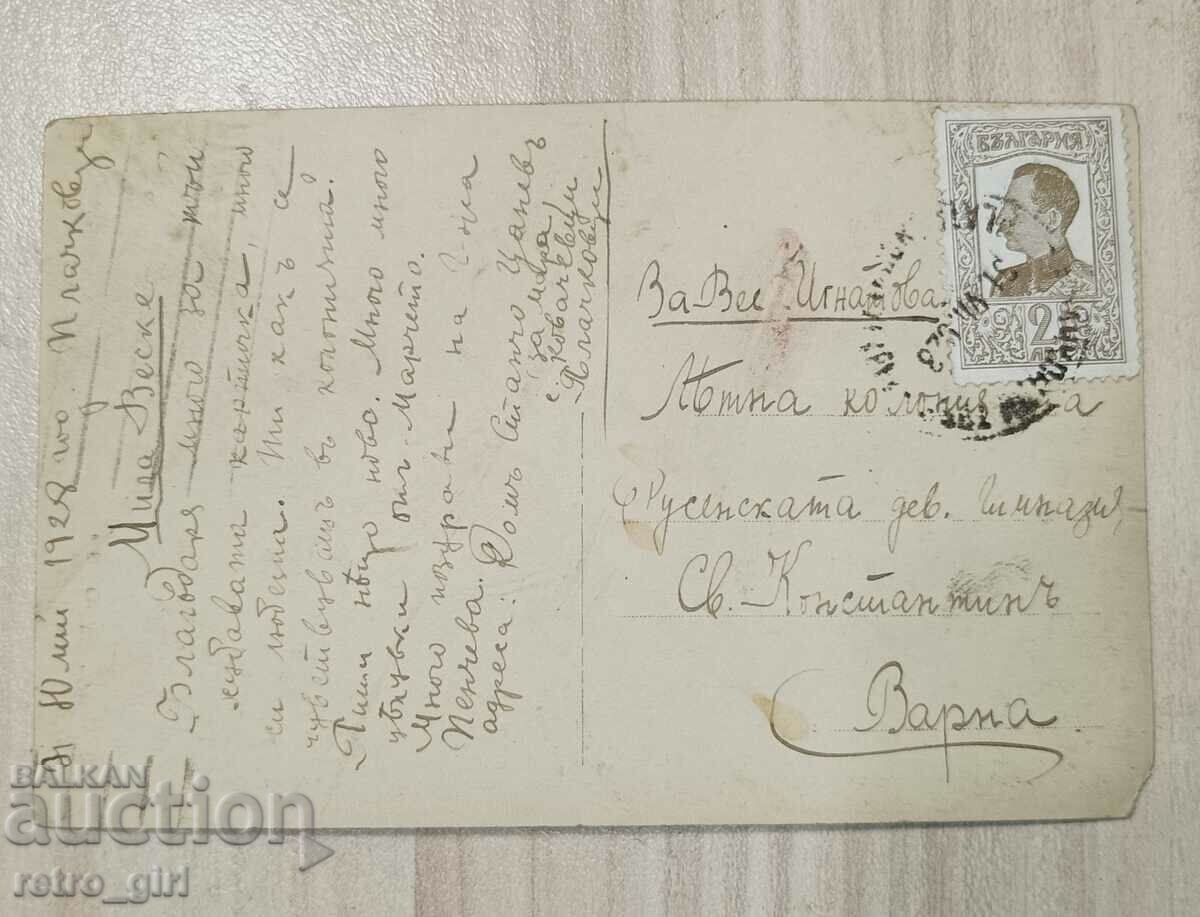 31 Юлий 1928 год Плачковци
Мила Веске
Благодаря много за твой
хубавата картичка, много
си любезна. Ти какъ се
чувствувашъ в колонията?
Пиши нѣщо ново. Много много
цѣлувки отъ Марчето.
Много поздрави на Г-жа
Пенчева.
адреса: Домъ Станчо Цаневъ
за мара
с. Ковачевци
Плачковци
За Вес Игнатова
Лѣтна колония на
Русенската дев. Гимназия
Св. Константинъ
Варна
БЪЛГАРИЯ
2
BALKAN
auction
retro_girl